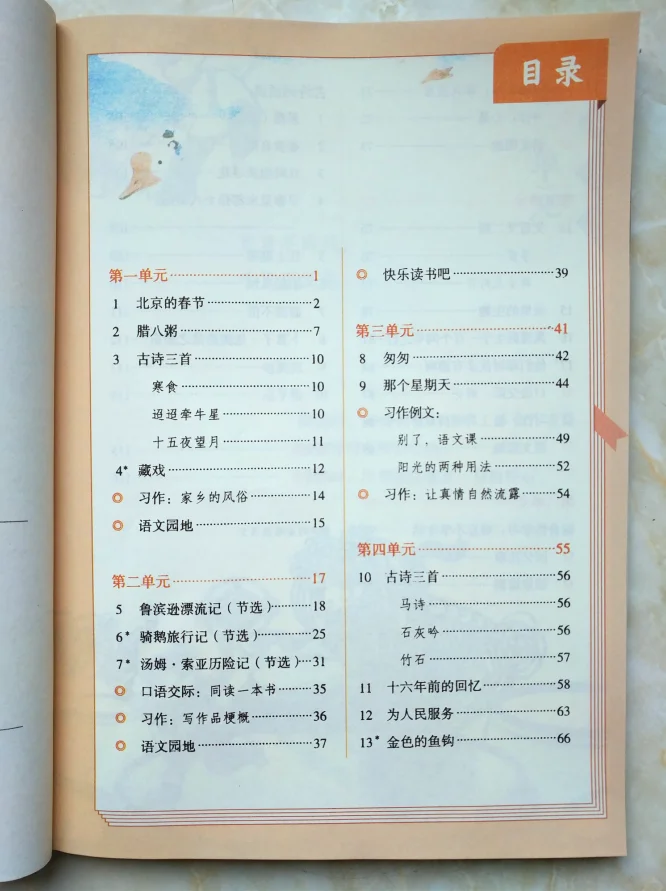 目录
第一单元 1
1 北京的春节 2
2 腊八粥 7
3 古诗三首 10
寒食 10
迢迢牵牛星 10
十五夜望月 11
4* 藏戏 12
习作：家乡的风俗 14
语文园地 15
第二单元 17
5 鲁滨逊漂流记（节选） 18
6* 骑鹅旅行记（节选） 25
7* 汤姆·索亚历险记（节选） 31
口语交际：同读一本书 35
习作：写作品梗概 36
语文园地 37
快乐读书吧 39
第三单元 41
8 匆匆 42
9 那个星期天 44
习作例文：
别了，语文课 49
阳光的两种用法 52
习作：让真情自然流露 54
第四单元 55
10 古诗三首 56
马诗 56
石灰吟 56
竹石 57
11 十六年前的回忆 58
12 为人民服务 63
13* 金色的鱼钩 66